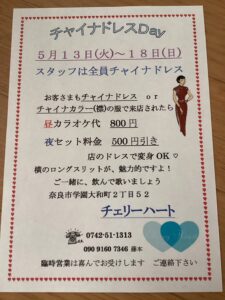 チャイナドレスDay
5月13日(火)～18日(日)
スタッフは全員チャイナドレス
お客さまもチャイナドレス or
チャイナカラー(襟)の服で来店されたら
昼カラオケ代 800円
夜セット料金 500円引き
店のドレスで変身OK♡
横のロングスリットが、魅力的ですよ！
ご一緒に、飲んで歌いましょう
奈良市学園大和町2丁目52
チェリーハート
0742-51-1313
090 9160 7346 藤本
臨時営業は喜んでお受けします ご連絡下さい